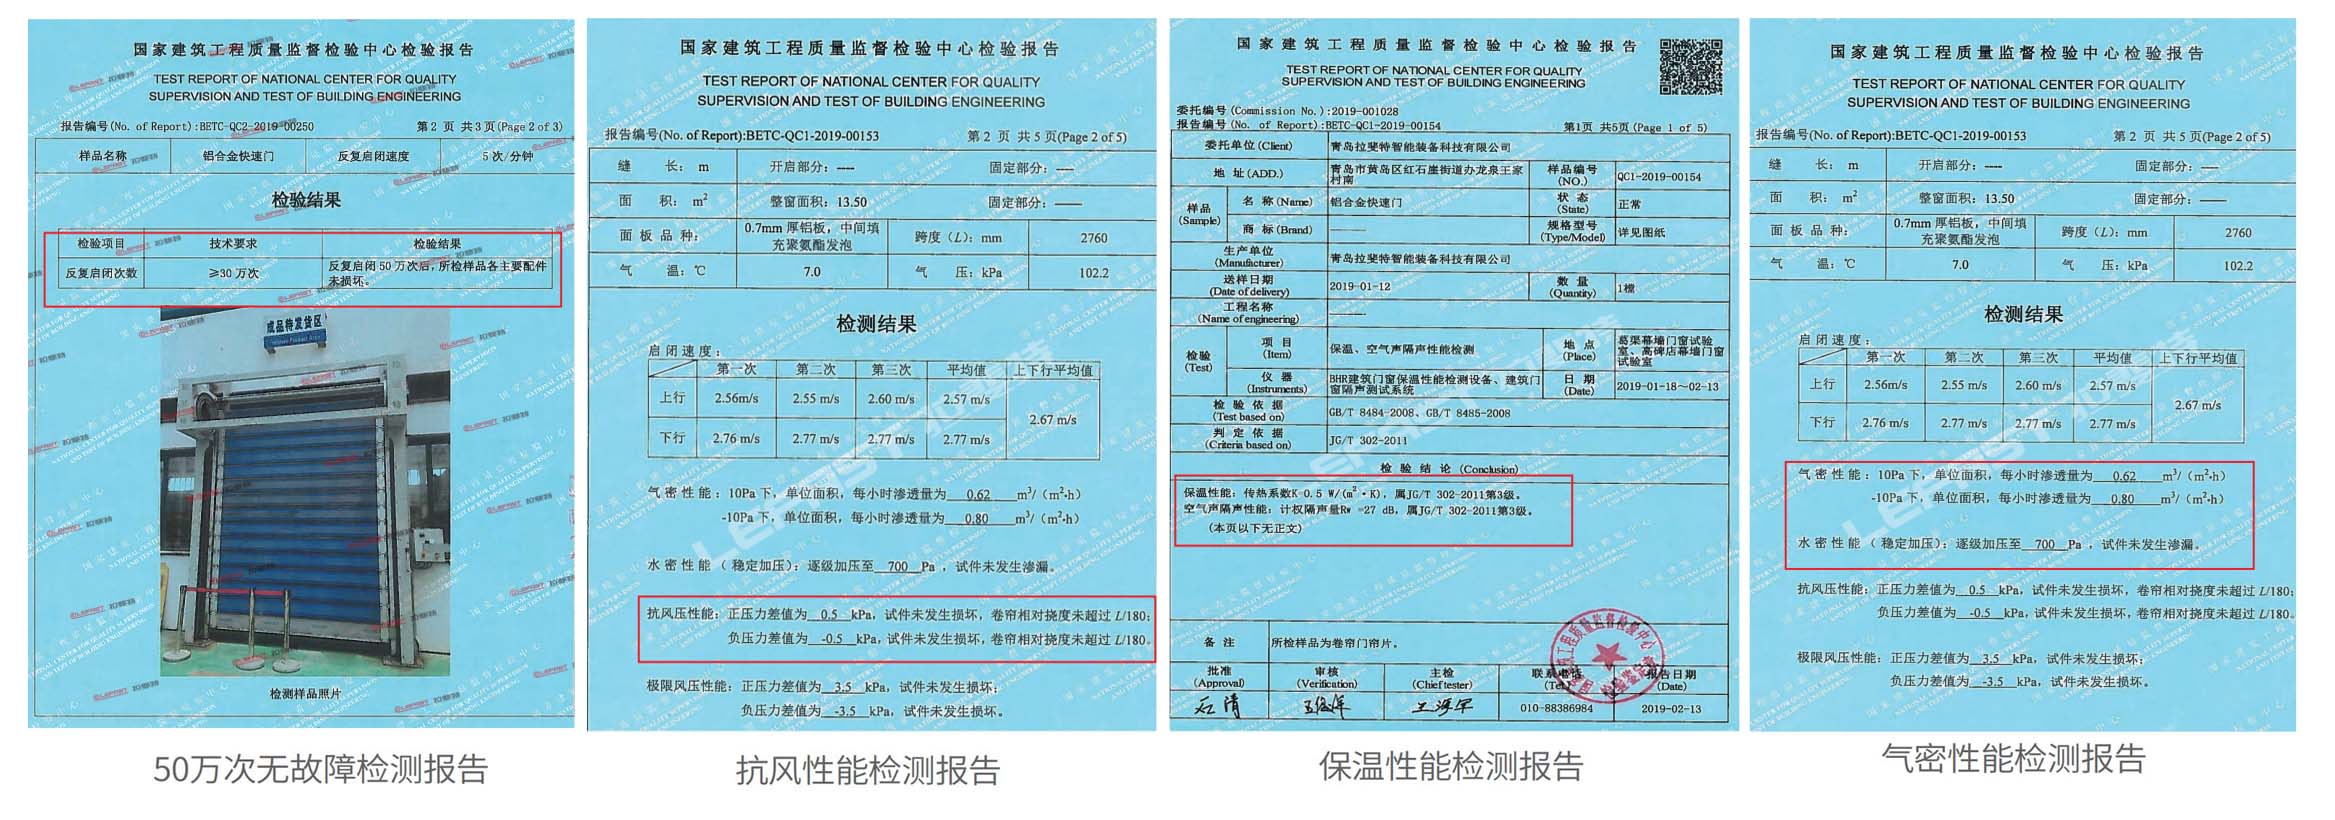 国家建筑工程质量监督检验中心检验报告
TEST REPORT OF NATIONAL CENTER FOR QUALITY
SUPERVISION AND TEST OF BUILDING ENGINEERING
报告编号(No. of Report):BETC-QC2-2019-00250 第 2 页 共 3 页(Page 2 of 3)
样品名称 铝合金快速门 反复启闭速度 5 次/分钟
检验结果
检验项目 技术要求 检验结果
反复启闭次数 ≥30 万次 反复启闭 50 万次后,所检样品各主要配件
未损坏。
成品待发货区
检测样品照片
50万次无故障检测报告
国家建筑工程质量监督检验中心检验报告
TEST REPORT OF NATIONAL CENTER FOR QUALITY
SUPERVISION AND TEST OF BUILDING ENGINEERING
报告编号(No. of Report):BETC-QC1-2019-00153 第 2 页 共 5 页(Page 2 of 5)
缝 长: m 开启部分: ---- 固定部分: ----
面 积: m² 整窗面积: 13.50 固定部分: ——
面 板 品 种: 0.7mm 厚铝板,中间填
充聚氨酯发泡 跨度 (L): mm 2760
气 温: ℃ 7.0 气 压: kPa 102.2
检测结果
启 闭 速 度:
第一次 第二次 第三次 平均值 上下行平均值
上行 2.56m/s 2.55 m/s 2.60 m/s 2.57 m/s 2.67 m/s
下行 2.76 m/s 2.77 m/s 2.77 m/s 2.77 m/s
气 密 性 能: 10Pa 下,单位面积,每小时渗透量为 0.62 m³/(m²·h)
-10Pa 下,单位面积,每小时渗透量为 0.80 m³/(m²·h)
水 密 性 能(稳定加压): 逐级加压至 700 Pa,试件未发生渗漏。
抗风压性能: 正压力差值为 0.5 kPa,试件未发生损坏,卷帘相对挠度未超过 L/180;
负压力差值为 -0.5 kPa,试件未发生损坏,卷帘相对挠度未超过 L/180。
极限风压性能: 正压力差值为 3.5 kPa,试件未发生损坏;
负压力差值为 -3.5 kPa,试件未发生损坏。
抗风性能检测报告
国家建筑工程质量监督检验中心检验报告
TEST REPORT OF NATIONAL CENTER FOR QUALITY
SUPERVISION AND TEST OF BUILDING ENGINEERING
委托编号(Commission No.):2019-001028
报告编号(No. of Report):BETC-QC1-2019-00154 第1页 共5页(Page 1 of 5)
委托单位(Client) 青岛拉斐特智能装备科技有限公司
地 址(ADD.) 青岛市黄岛区红石崖街道办龙泉王家
村南 样品编号
(NO.) QC1-2019-00154
样品
(Sample) 名 称(Name) 铝合金快速门 状 态
(State) 正常
商 标(Brand) ———— 规格型号
(Type/Model) 详见图纸
生产单位
(Manufacturer) 青岛拉斐特智能装备科技有限公司
送样日期
(Date of delivery) 2019-01-12 数 量
(Quantity) 1樘
工程名称
(Name of engineering) ————
检验
(Test) 项 目
(Item) 保温、空气声隔声性能检测 地 点
(Place) 葛渠幕墙门窗试验
室、高碑店幕墙门窗
试验室
仪 器
(Instruments) BHR建筑门窗保温性能检测设备、建筑门
窗隔声测试系统 日 期
(Date) 2019-01-18~02-13
检 验 依 据
(Test based on) GB/T 8484-2008、GB/T 8485-2008
判 定 依 据
(Criteria based on) JG/T 302-2011
检 验 结 论 (Conclusion)
保温性能: 传热系数K=0.5 W/(m²·K),属JG/T 302-2011第3级。
空气声隔声性能: 计权隔声量Rw =27 dB,属JG/T 302-2011第3级。
(本页以下无正文)
备 注 所检样品为卷帘门帘片。
批准
(Approval) 审核
(Verification) 主检
(Chief tester) 联系电话
(Tel) 报告日期
(Date)
010-88386984 2019-02-13
保温性能检测报告
国家建筑工程质量监督检验中心检验报告
TEST REPORT OF NATIONAL CENTER FOR QUALITY
SUPERVISION AND TEST OF BUILDING ENGINEERING
报告编号(No. of Report):BETC-QC1-2019-00153 第 2 页 共 5 页(Page 2 of 5)
缝 长: m 开启部分: ---- 固定部分: ——
面 积: m² 整窗面积: 13.50 固定部分: ——
面 板 品 种: 0.7mm 厚铝板,中间填
充聚氨酯发泡 跨度 (L): mm 2760
气 温: ℃ 7.0 气 压: kPa 102.2
检测结果
启 闭 速 度:
第一次 第二次 第三次 平均值 上下行平均值
上行 2.56m/s 2.55 m/s 2.60 m/s 2.57 m/s 2.67 m/s
下行 2.76 m/s 2.77 m/s 2.77 m/s 2.77 m/s
气 密 性 能: 10Pa 下,单位面积,每小时渗透量为 0.62 m³/(m²·h)
-10Pa 下,单位面积,每小时渗透量为 0.80 m³/(m²·h)
水 密 性 能(稳定加压): 逐级加压至 700 Pa,试件未发生渗漏。
抗风压性能: 正压力差值为 0.5 kPa,试件未发生损坏,卷帘相对挠度未超过 L/180;
负压力差值为 -0.5 kPa,试件未发生损坏,卷帘相对挠度未超过 L/180。
极限风压性能: 正压力差值为 3.5 kPa,试件未发生损坏;
负压力差值为 -3.5 kPa,试件未发生损坏。
气密性能检测报告